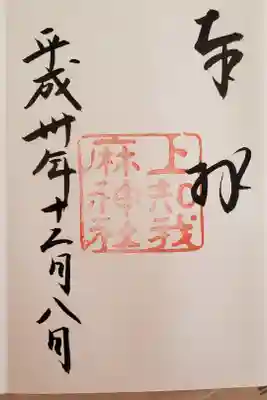 奉拝
上知我
麻神社
平成卅年十二月八日